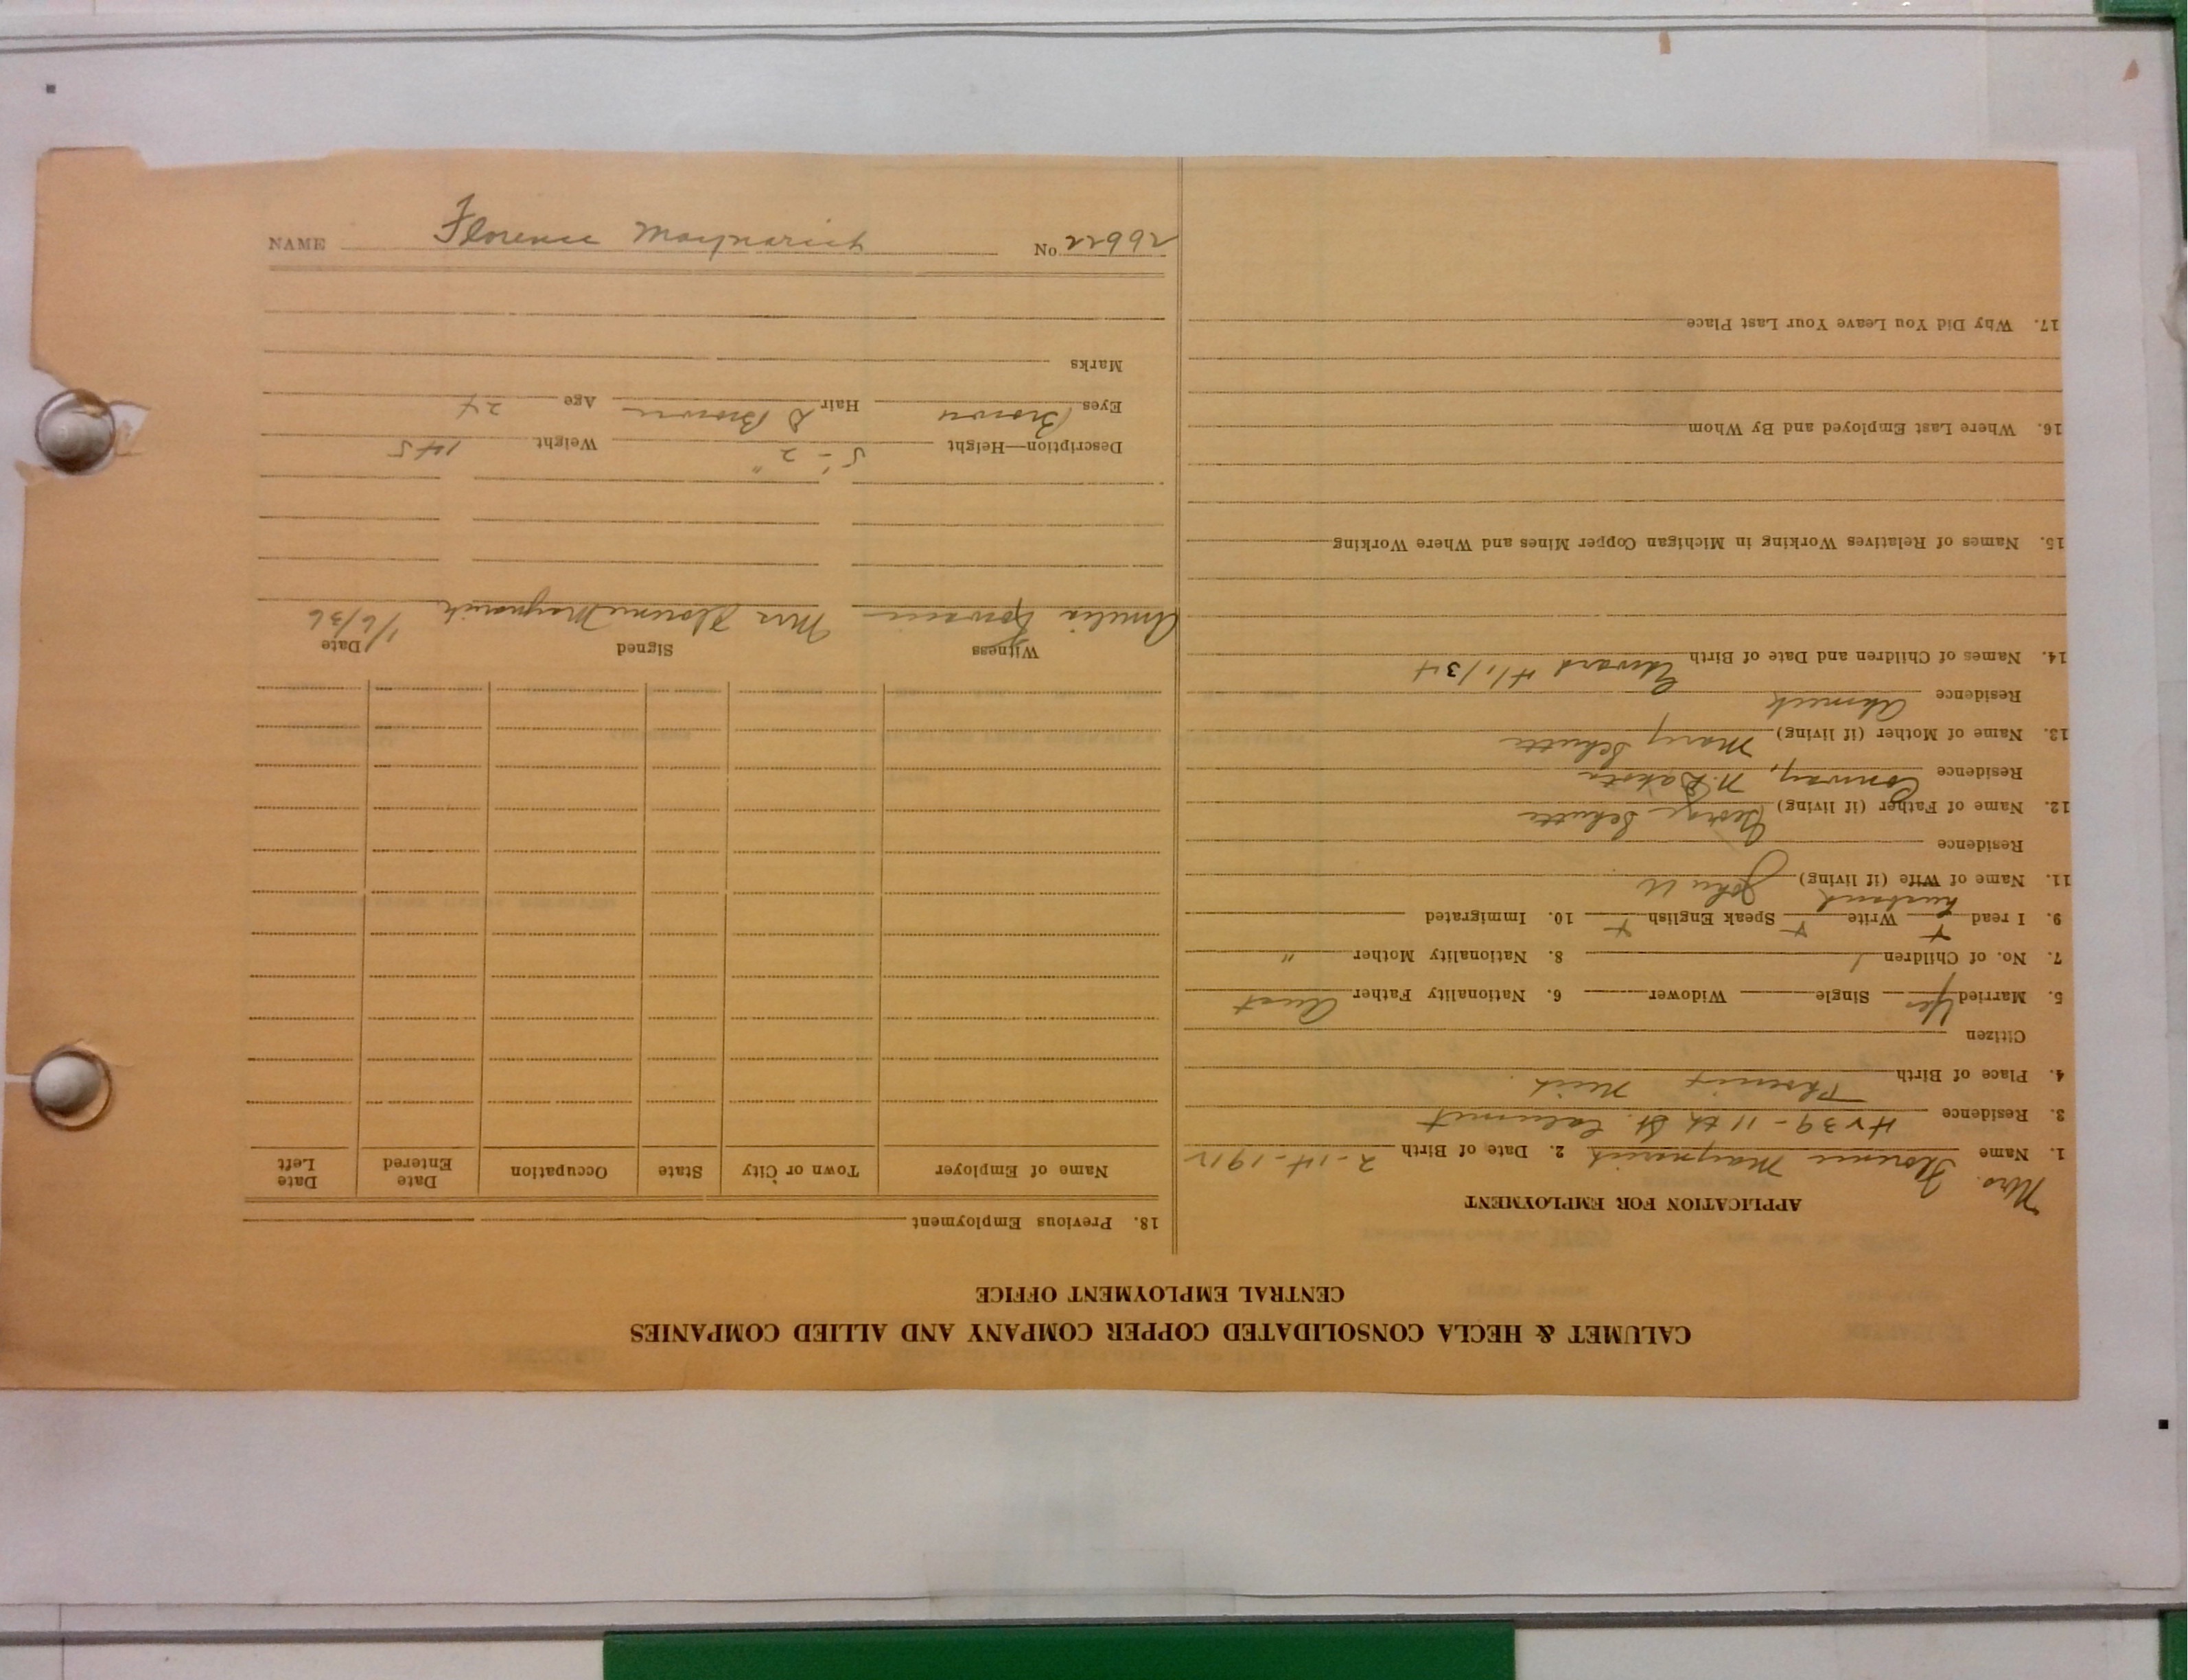 CALUMET & HECLA CONSOLIDATED COPPER COMPANY AND ALLIED COMPANIES
CENTRAL EMPLOYMENT OFFICE
APPLICATION FOR EMPLOYMENT
1. Name Mrs. Florence Maynarich 2. Date of Birth 2-14-1912
3. Residence 4239-11th St. Calumet
4. Place of Birth Phoenix Mich
Citizen
5. Married Yes Single Widower 6. Nationality Father Aust
7. No. of Children 1 8. Nationality Mother "
9. I read + Write + Speak English + 10. Immigrated
husband
11. Name of Wife (if living) John U
Residence
12. Name of Father (if living) George Schutte
Residence Conway, N. Dakota
13. Name of Mother (if living) Mary Schutte
Residence Ahmeek
14. Names of Children and Date of Birth Edward 4/1/34
15. Names of Relatives Working in Michigan Copper Mines and Where Working
16. Where Last Employed and By Whom
17. Why Did You Leave Your Last Place
18. Previous Employment
Name of Employer Town or City State Occupation Date Entered Date Left
Witness Signed Date
Amelia Mrs Florence Maynarich 1/6/36
Description—Height 5'-2" Weight 145
Eyes Brown Hair D Brown Age 24
Marks
NAME Florence Maynarich No 22692